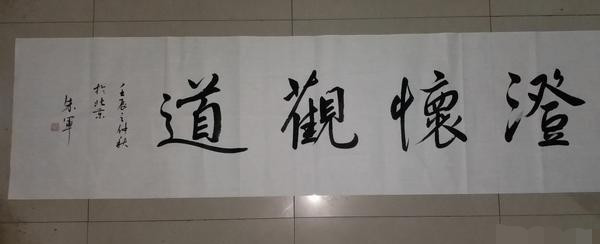 澄懷觀道
壬辰之仲秋
於北京
朱軍